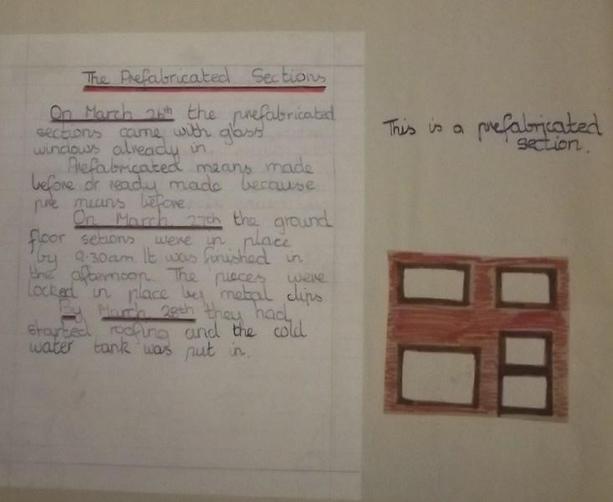 The Prefabricated Sections
On March 26th the prefabricated
sections came with glass
windows already in.
Prefabricated means made
before or ready made because
pre means before.
On March 27th the ground
floor setions were in place
by 9.30am It was finished in
the afternoon. The pieces were
locked in place by metal clips
By March 28th they had
started roofing and the cold
water tank was put in.
This is a prefabricated
section.